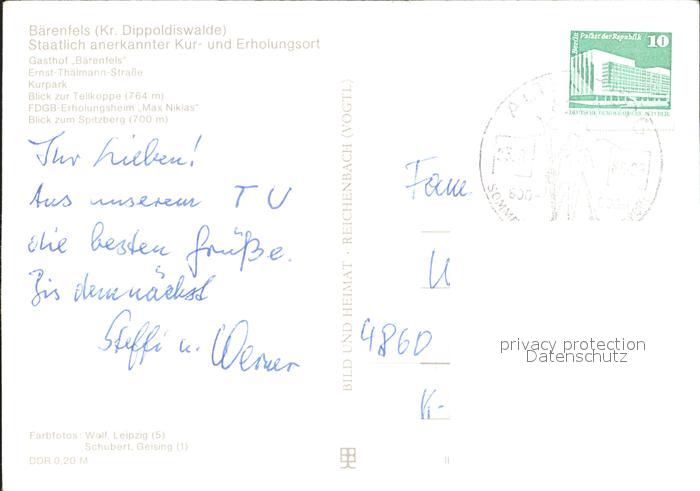 Bärenfels (Kr. Dippoldiswalde)
Staatlich anerkannter Kur- und Erholungsort
Gasthof „Bärenfels"
Ernst-Thälmann-Straße
Kurpark
Blick zur Tellkoppe (764 m)
FDGB-Erholungsheim „Max Niklas"
Blick zum Spitzberg (700 m)
Ihr Lieben!
Aus unserem TU
die besten Grüße.
Bis demnächst
Steffi u. Werner
Farbfotos: Wolf, Leipzig (5)
Schubert, Geising (1)
DDR 0,20 M
BILD UND HEIMAT · REICHENBACH (VOGTL)
Berlin Palast der Republik 10
DEUTSCHE DEMOKRATISCHE REPUBLIK
ALT
SOMME
Fam.
U
4860
K-
II
privacy protection
Datenschutz